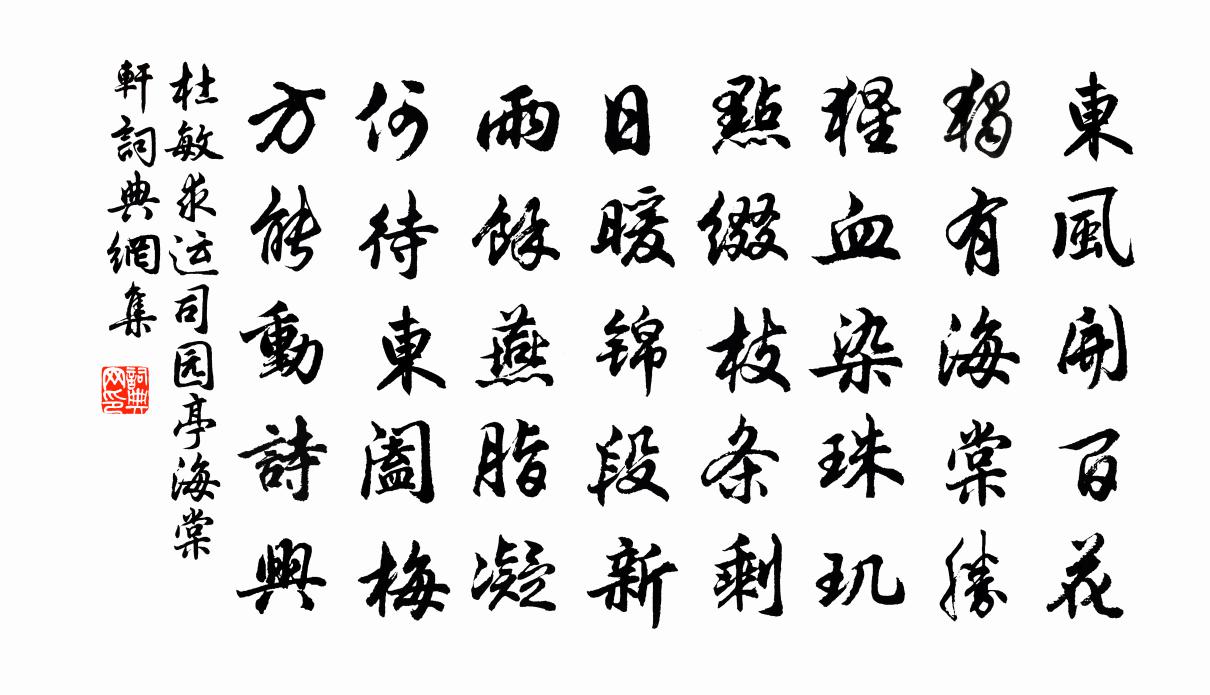 東風開百花
獨有海棠勝
猩血染珠玑
點缀枝条剩
日暖锦段新
雨餘燕脂凝
何待東阁梅
方能動詩興
杜敏求运司园亭海棠
軒詞典網集
詞典
网印